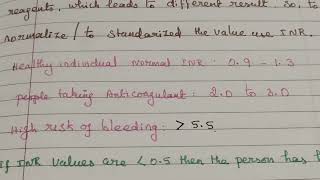 reagents, which leads to different result. So, to
normalize / to standarized the value use INR.
Healthy individual normal INR : 0.9 - 1.3
people taking Anticoagulant : 2.0 to 3.0
High risk of bleeding : > 5.5
If INR values are < 0.5 then the person has